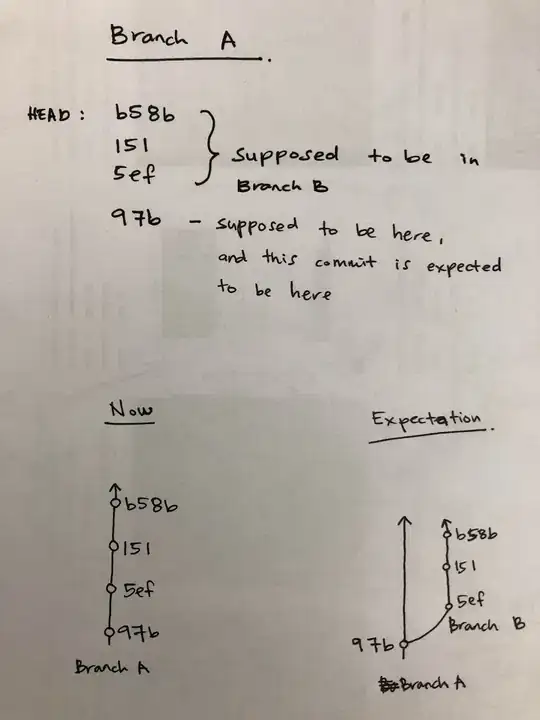 Branch A
HEAD: b58b
151
5ef
supposed to be in
Branch B
97b - supposed to be here,
and this commit is expected
to be here
Now
b58b
151
5ef
97b
Branch A
Expectation.
b58b
151
5ef
Branch B
97b
Branch A